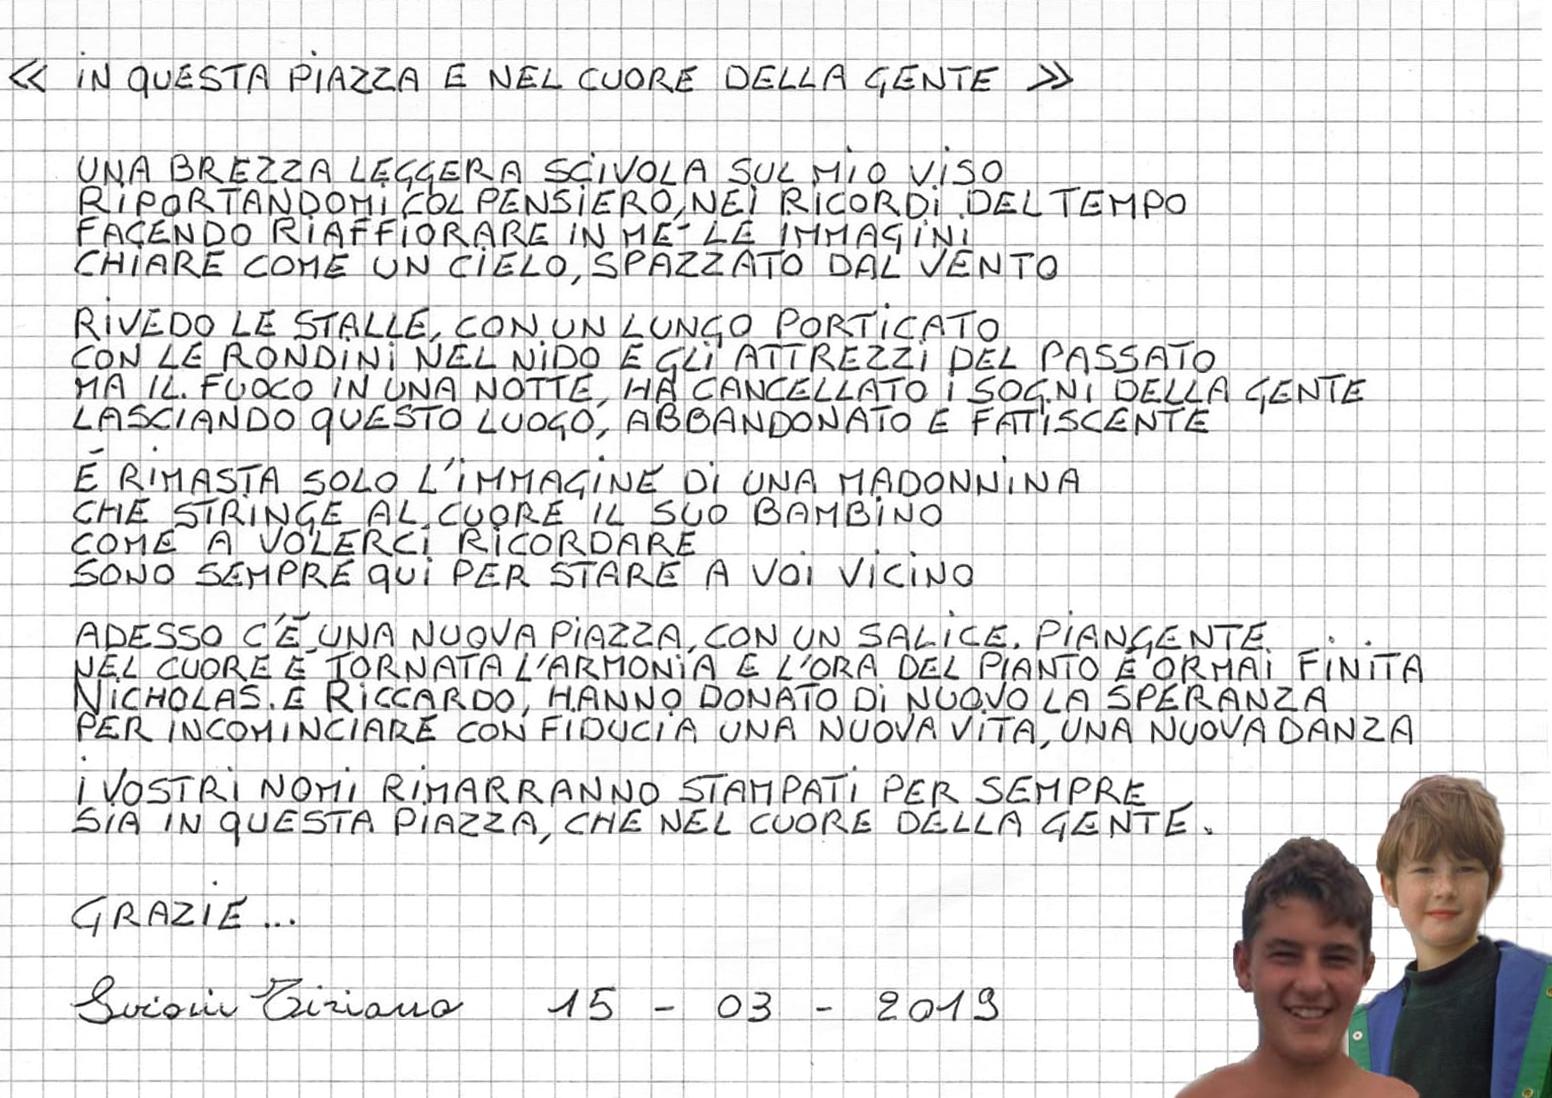 « IN QUESTA PIAZZA E NEL CUORE DELLA GENTE »
UNA BREZZA LEGGERA SCIVOLA SUL MIO VISO
RIPORTANDOMI COL PENSIERO, NEI RICORDI DEL TEMPO
FACENDO RIAFFIORARE IN ME LE IMMAGINI
CHIARE COME UN CIELO, SPAZZATO DAL VENTO
RIVEDO LE STALLE, CON UN LUNGO PORTICATO
CON LE RONDINI NEL NIDO E GLI ATTREZZI DEL PASSATO
MA IL FUOCO IN UNA NOTTE, HA CANCELLATO I SOGNI DELLA GENTE
LASCIANDO QUESTO LUOGO, ABBANDONATO E FATISCENTE
È RIMASTA SOLO L'IMMAGINE DI UNA MADONNINA
CHE STRINGE AL CUORE IL SUO BAMBINO
COME A VOLERCI RICORDARE
SONO SEMPRE QUI PER STARE A VOI VICINO
ADESSO C'È UNA NUOVA PIAZZA, CON UN SALICE PIANGENTE
NEL CUORE È TORNATA L'ARMONIA E L'ORA DEL PIANTO È ORMAI FINITA
NICHOLAS E RICCARDO, HANNO DONATO DI NUOVO LA SPERANZA
PER INCOMINCIARE CON FIDUCIA UNA NUOVA VITA, UNA NUOVA DANZA
I VOSTRI NOMI RIMARRANNO STAMPATI PER SEMPRE
SIA IN QUESTA PIAZZA, CHE NEL CUORE DELLA GENTE.
GRAZIE...
Tiziano 15 - 03 - 2019